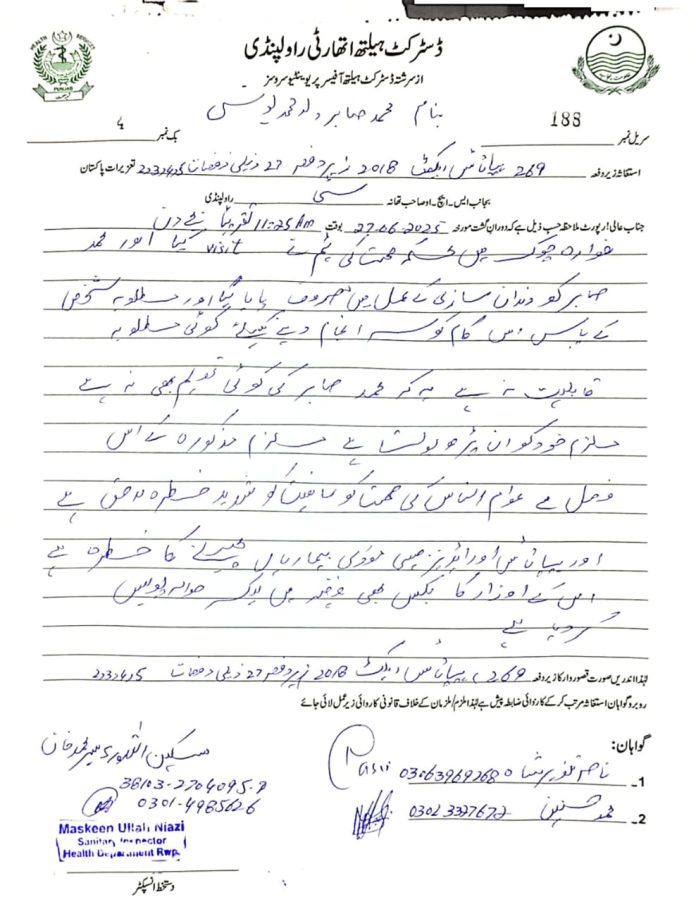 ڈسٹرکٹ ہیلتھ اتھارٹی راولپنڈی
از سرشتہ ڈسٹرکٹ ہیلتھ آفیسر پریوینٹیو سروسز
بنام محمد صابر ولد محمد یونس
سریل نمبر 188 بک نمبر 4
استغاثہ زیر دفعہ 269 ہیپاٹائٹس ایکٹ 2018 زیر دفعہ 27 ذیلی دفعات تعزیرات پاکستان
بجانب ایس۔ایچ۔او صاحب تھانہ سٹی راولپنڈی
جناب عالی! رپورٹ ملاحظہ حسب ذیل ہے کہ دوران گشت مورخہ 27-06-2025 بوقت 11:25 Am تقریباً دن
فوارہ چوک میں محکمہ صحت کی ٹیم نے visit کیا اور محمد
صابر کو دندان سازی کے عمل میں مصروف پایا گیا اور مطلوبہ شخص
کے پاس اس کام کو سر انجام دینے کیلئے کوئی مطلوبہ
قابلیت نہ ہے یہ کہ محمد صابر کی کوئی تعلیم بھی نہ ہے
ملزم خود کو ان پڑھ بولتا ہے ملزم مذکورہ کے اس
فعل سے عوام الناس کی صحت کو شدید خطرہ لاحق ہے
اور ہیپاٹائٹس اور ایڈز جیسی موذی بیماریاں پھیلنے کا خطرہ ہے
اس کے اوزار کا بکس بھی قبضہ میں لیکر حوالہ پولیس
کر دیا ہے
لہذا اندریں صورت قصور وار کا زیر دفعہ 269، ہیپاٹائٹس ایکٹ 2018 زیر دفعہ 27 ذیلی دفعات
روبرو گواہان استغاثہ مرتب کر کے کارروائی ضابطہ پیش ہے لہذا ملزم/ملزمان کے خلاف قانونی کاروائی زیر عمل لائی جائے
گواہان:
1- 03063969268
2- محمد حسنین
38103-2704095-9
0301-4985626
Maskeen Ullah Niazi
Sanitary Inspector
Health Department Rwp.
دستخط انسپکٹر